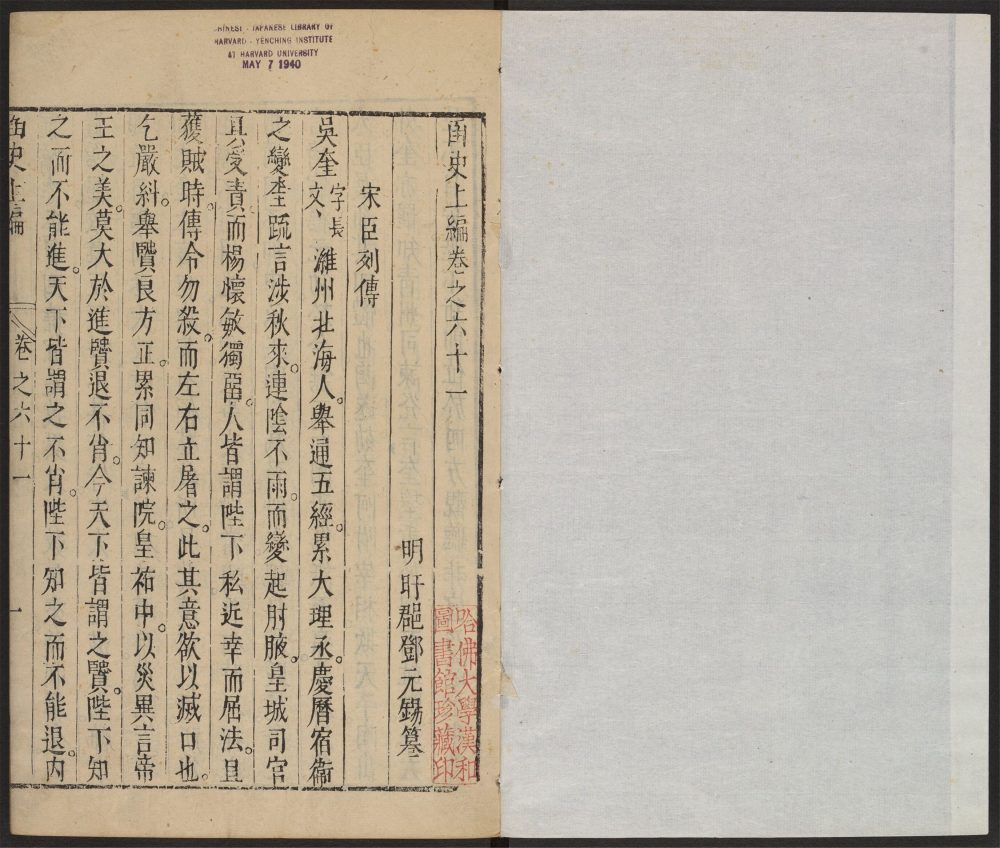 CHINESE - JAPANESE LIBRARY OF
HARVARD - YENCHING INSTITUTE
AT HARVARD UNIVERSITY
MAY 7 1940
函史上編卷之六十一
明盱郡鄧元錫纂
哈佛大學漢和
圖書館珍藏印
宋臣列傳
吳奎字長文、濰州北海人。舉通五經。累大理丞。慶曆宿衛
之變奎䟽言涉秋來。連陰不雨。而變起肘腋。皇城司官
具受責。而楊懷敏獨畱。人皆謂陛下私近幸而屈法。且
獲賊時。傳令勿殺。而左右立屠之。此其意欲以滅口也。
乞嚴糾。舉賢良方正。累同知諫院。皇祐中。以災異言帝
王之美。莫大於進賢退不肖。今天下皆謂之賢。陛下知
之而不能進。天下皆謂之不肖。陛下知之而不能退。內
函史上編
卷之六十一
一